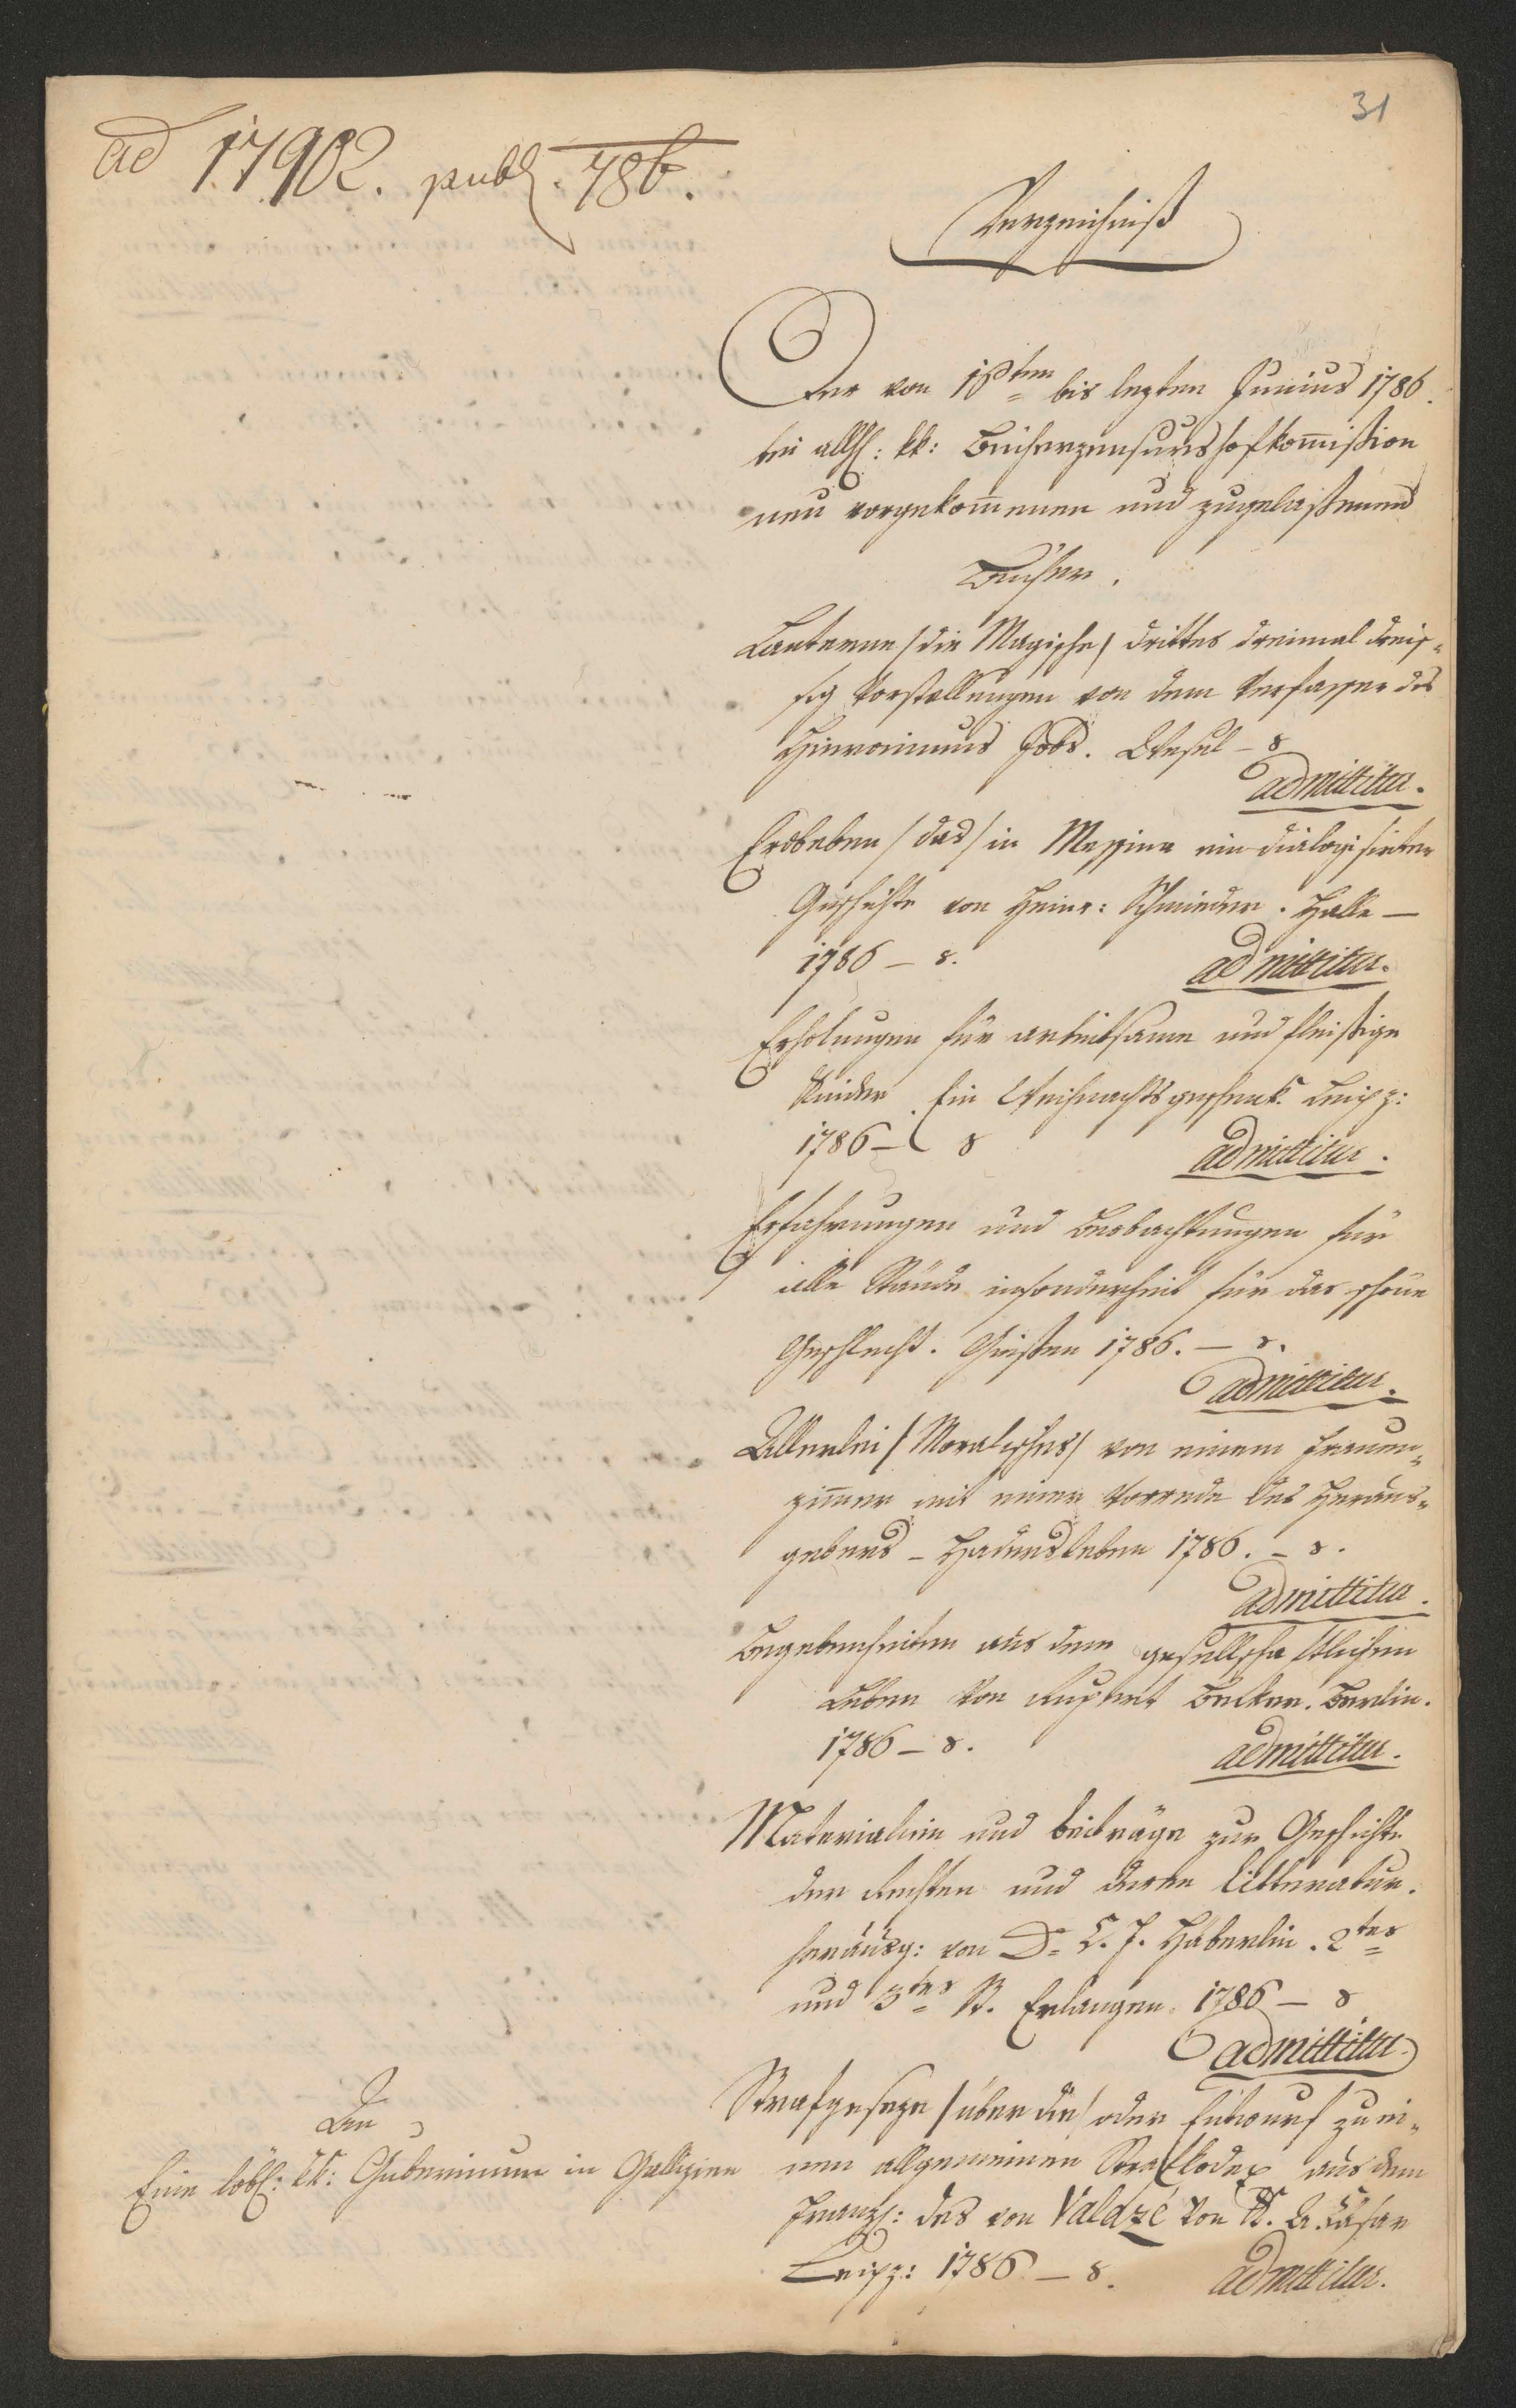 31
ad 17902. publ. 786.
Verzeichniß
Der von 16ten bis lezten Junius 1786.
bei allh: kk: Bücherzensurshofkom̅ißion
neu vorgekom̅enen und zugelaßenen
Bücher.
Lanterne /die Magische/ drittes dreimal dreis¬
sig Vorstellungen von dem Verfasser des
Hieronimus Jobs. Wesel – 8
admittitur.
Erdbeben /das/ in Messina eine dialogisirte
Geschichte von Heinr: Schmieder. Halle –
1786 – 8.
admittitur.
Erholungen für arbeitsame und fleißige
Kinder Ein Weihnachtsgeschenk. Leipz:
1786 – 8
admittitur.
Erfahrungen und Beobachtungen für
alle Stände insonderheit für das schöne
Geschlecht. Gießen 1786. – 8.
admittitur.
Allerlei /Moralisches/ von einem Frauen¬
zim̅er mit einer Vorrede des Heraus¬
gebers – Hadersleben 1786. – 8.
admittitur.
Begebenheiten aus dem gesellschaftlichen
Leben von Rupert Becker. Berlin.
1786 – 8.
admittitur.
Materialien und Beiträge zur Geschichte
der Rechten und deren Litteratur.
herausg: von D. C. F. Häberlin. 2tes
und 3tes St. Erlangen 1786 – 8
admittitur.
Strafgeseze /über die/ oder Entwurf zu ei¬
nem allgemeinen Strafkodex aus dem
Franz: des von Valazé von K. A. Cäsar
Leipz: 1786 – 8.
admittitur.
An
Eine löbl: kk: Gubernium in Gallizien